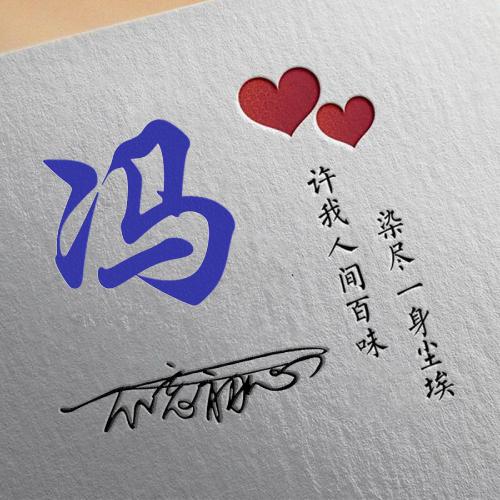 冯
许我人间百味
染尽一身尘埃